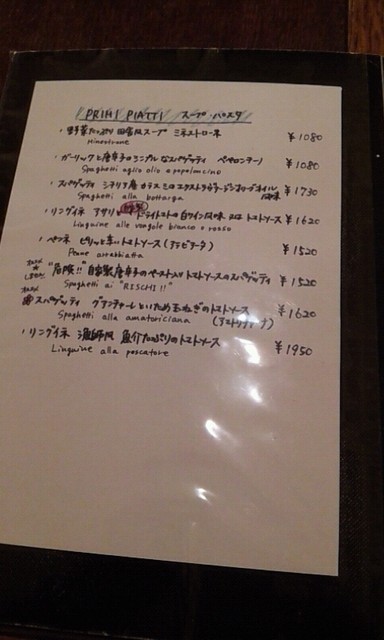 PRIMI PIATTI スープ・パスタ
・野菜たっぷり田舎風スープ ミネストローネ ¥1080
Minestrone
・ガーリックと唐辛子のシンプルなスパゲッティ ペペロンチーノ ¥1080
Spaghetti aglio olio e peperoncino
・スパゲッティ シチリア産カラスミのエクストラヴァージンオリーブオイル風味 ¥1730
Spaghetti alla bottarga
・リングイネ アサリ ドライトマトの白ワイン風味 又は トマトソース ¥1620
Linguine alle vongole bianco o rosso
・ペンネ ピリッと辛いトマトソース(アラビアータ) ¥1520
Penne arrabbiata
"危険!!" 自家製唐辛子のペースト入りトマトソースのスパゲッティ ¥1520
Spaghetti ai "RISCHI!!"
スパゲッティ グアンチャーレといためた玉ねぎのトマトソース ¥1620
Spaghetti alla amatoriciana (アマトリチャーナ)
・リングイネ 漁師風 魚介たっぷりのトマトソース ¥1950
Linguine alla pescatore